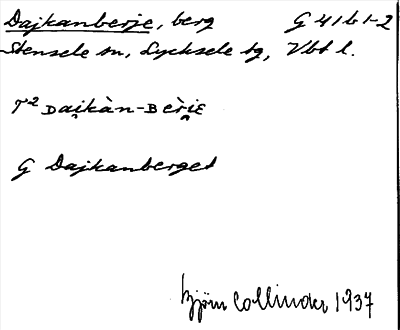 Dajkanberje, berg G 41 b 1-2
Stensele sn, Lycksele tg, Vbt l.
T² Dai̭kàn-Bèri̭E
G Dajkanberget
Björn Collinder 1937